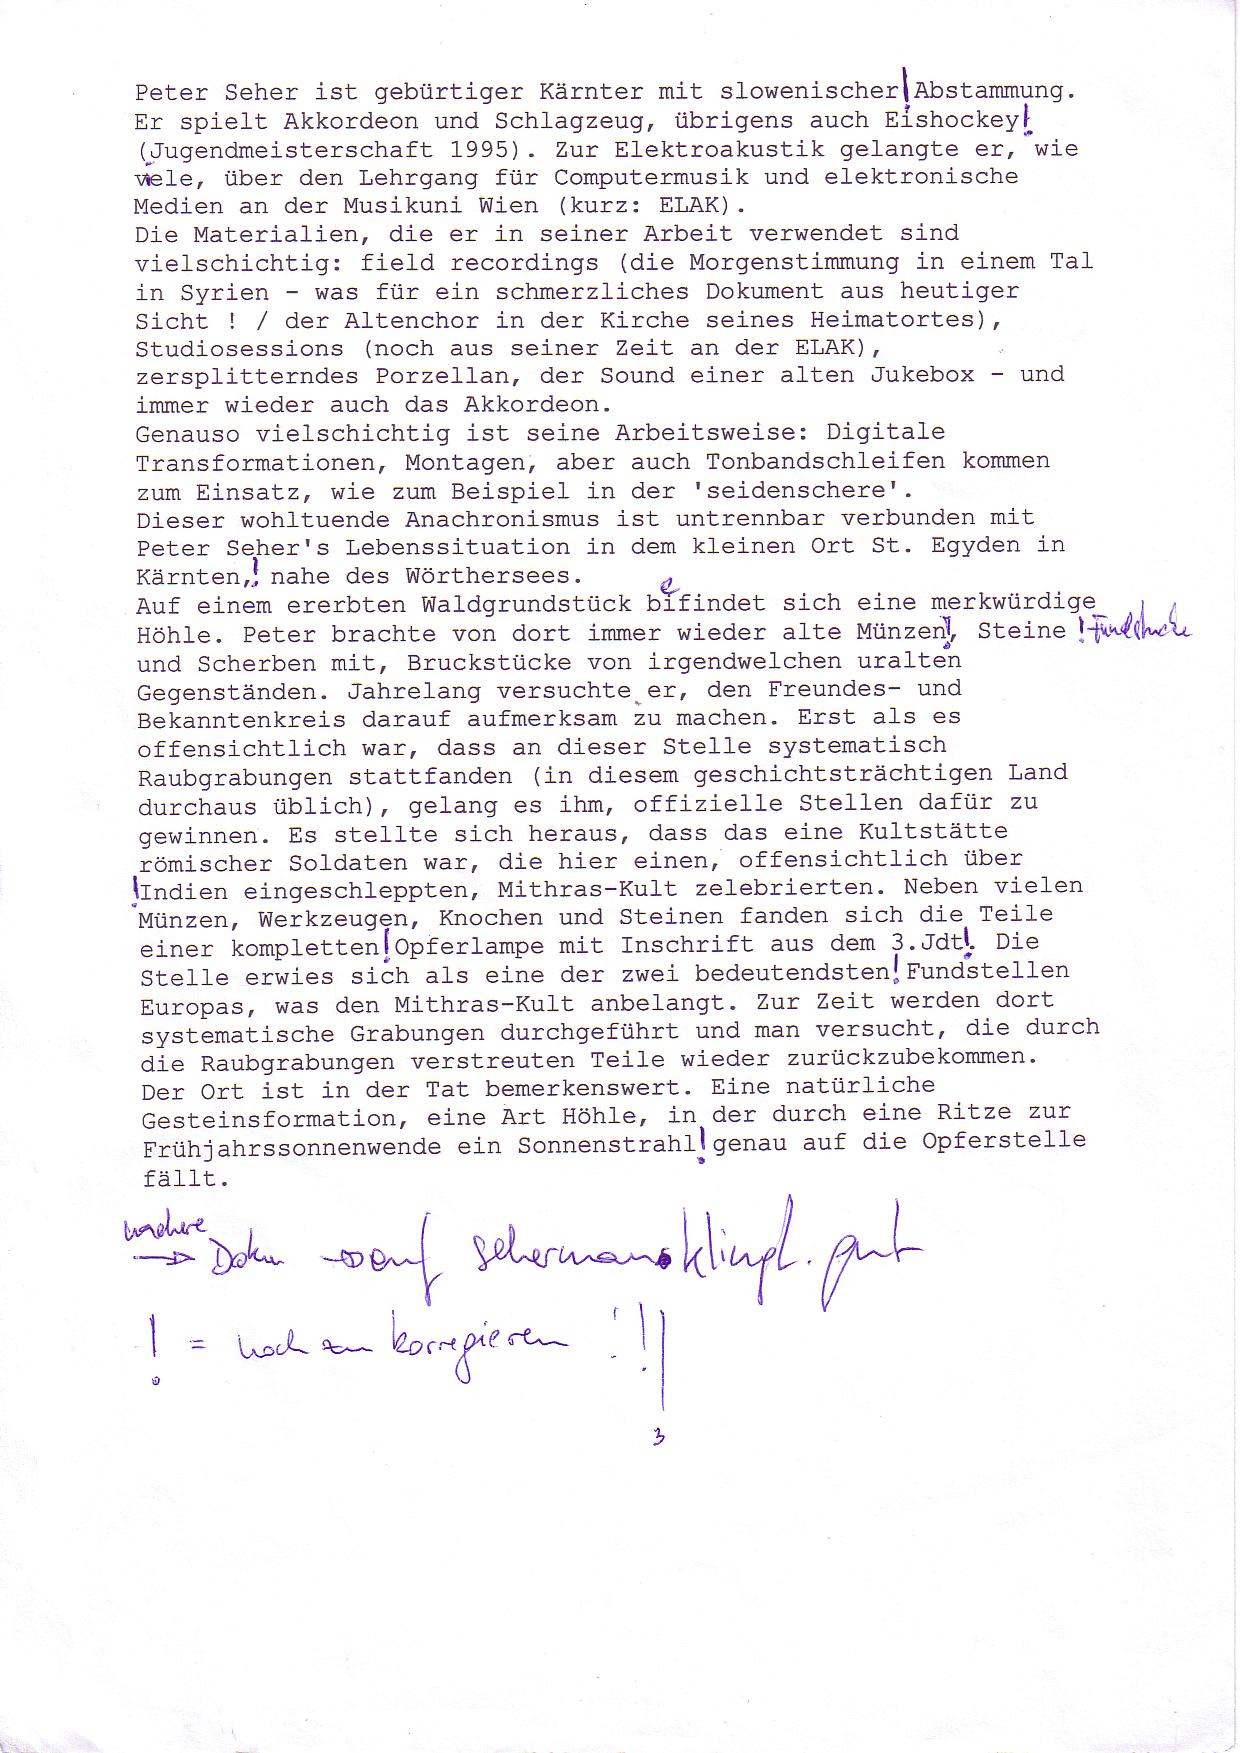 Peter Seher ist gebürtiger Kärnter mit slowenischer! Abstammung.
Er spielt Akkordeon und Schlagzeug, übrigens auch Eishockey!
(Jugendmeisterschaft 1995). Zur Elektroakustik gelangte er, wie
viele, über den Lehrgang für Computermusik und elektronische
Medien an der Musikuni Wien (kurz: ELAK).
Die Materialien, die er in seiner Arbeit verwendet sind
vielschichtig: field recordings (die Morgenstimmung in einem Tal
in Syrien - was für ein schmerzliches Dokument aus heutiger
Sicht ! / der Altenchor in der Kirche seines Heimatortes),
Studiosessions (noch aus seiner Zeit an der ELAK),
zersplitterndes Porzellan, der Sound einer alten Jukebox - und
immer wieder auch das Akkordeon.
Genauso vielschichtig ist seine Arbeitsweise: Digitale
Transformationen, Montagen, aber auch Tonbandschleifen kommen
zum Einsatz, wie zum Beispiel in der 'seidenschere'.
Dieser wohltuende Anachronismus ist untrennbar verbunden mit
Peter Seher's Lebenssituation in dem kleinen Ort St. Egyden in
Kärnten,! nahe des Wörthersees.
e
Auf einem ererbten Waldgrundstück bifindet sich eine merkwürdige
Höhle. Peter brachte von dort immer wieder alte Münzen!, Steine ! Fundstücke
und Scherben mit, Bruckstücke von irgendwelchen uralten
Gegenständen. Jahrelang versuchte er, den Freundes- und
Bekanntenkreis darauf aufmerksam zu machen. Erst als es
offensichtlich war, dass an dieser Stelle systematisch
Raubgrabungen stattfanden (in diesem geschichtsträchtigen Land
durchaus üblich), gelang es ihm, offizielle Stellen dafür zu
gewinnen. Es stellte sich heraus, dass das eine Kultstätte
römischer Soldaten war, die hier einen, offensichtlich über
!Indien eingeschleppten, Mithras-Kult zelebrierten. Neben vielen
Münzen, Werkzeugen, Knochen und Steinen fanden sich die Teile
einer kompletten! Opferlampe mit Inschrift aus dem 3.Jdt!. Die
Stelle erwies sich als eine der zwei bedeutendsten! Fundstellen
Europas, was den Mithras-Kult anbelangt. Zur Zeit werden dort
systematische Grabungen durchgeführt und man versucht, die durch
die Raubgrabungen verstreuten Teile wieder zurückzubekommen.
Der Ort ist in der Tat bemerkenswert. Eine natürliche
Gesteinsformation, eine Art Höhle, in der durch eine Ritze zur
Frühjahrssonnenwende ein Sonnenstrahl! genau auf die Opferstelle
fällt.
Doku → auf klingt.gut
! = noch zu korregieren !!
3